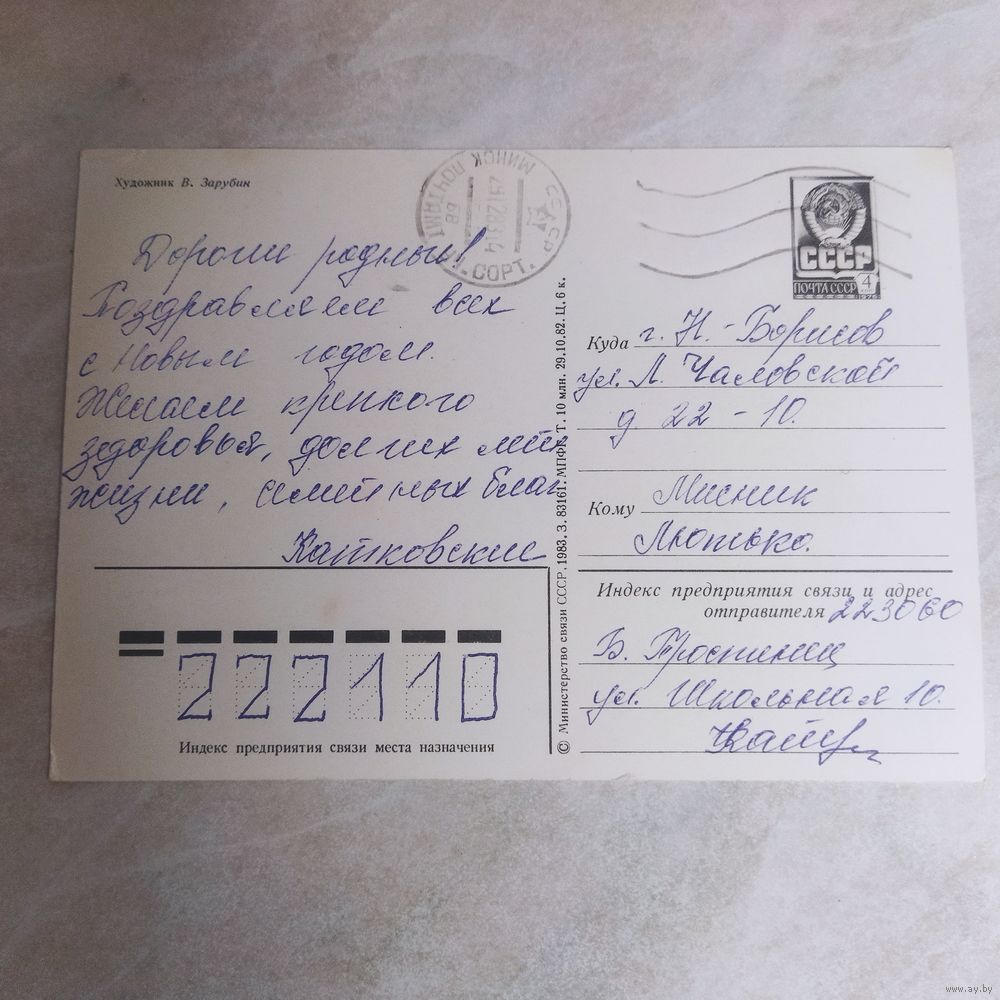 Художник В. Зарубин
МИНСК ПОЧТАМТ
СССР
СОРТ.
СССР
ПОЧТА СССР
4
1976
Дорогие родные!
Поздравляем всех
с Новым годом.
Желаем крепкого
здоровья, долгих лет
жизни, семейных благ
Катковские
222110
Индекс предприятия связи места назначения
© Министерство связи СССР. 1983. З. 83161. МПФГ. Т. 10 млн. 29.10.82. Ц. 6 к.
Куда г. Н-Борисов
ул. Л. Чаловской
д 22-10.
Кому Мисник
Людмько.
Индекс предприятия связи и адрес
отправителя 223060
Б. Тростинец
ул. Школьная 10.
www.ay.by